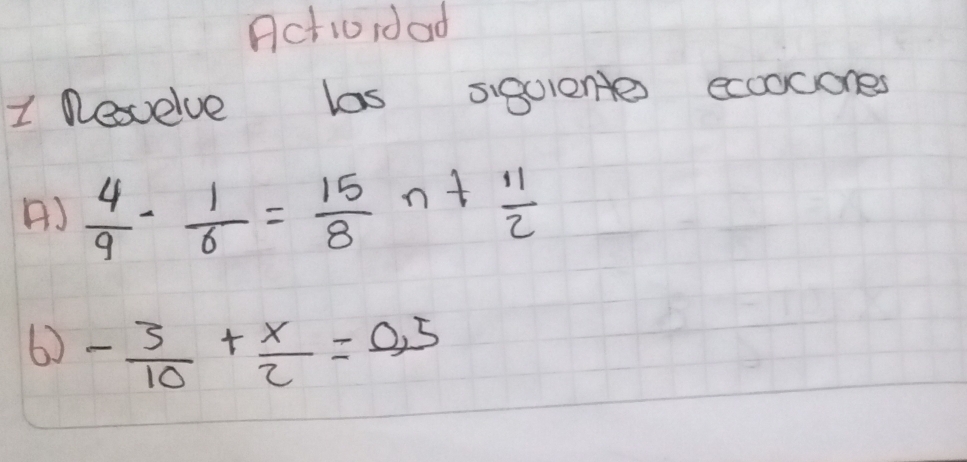 Actividad
I Resuelve las siguientes ecuaciones
A) 4/9 - 1/6 = 15/8 n + 11/2
b) - 3/10 + x/2 = 0,5